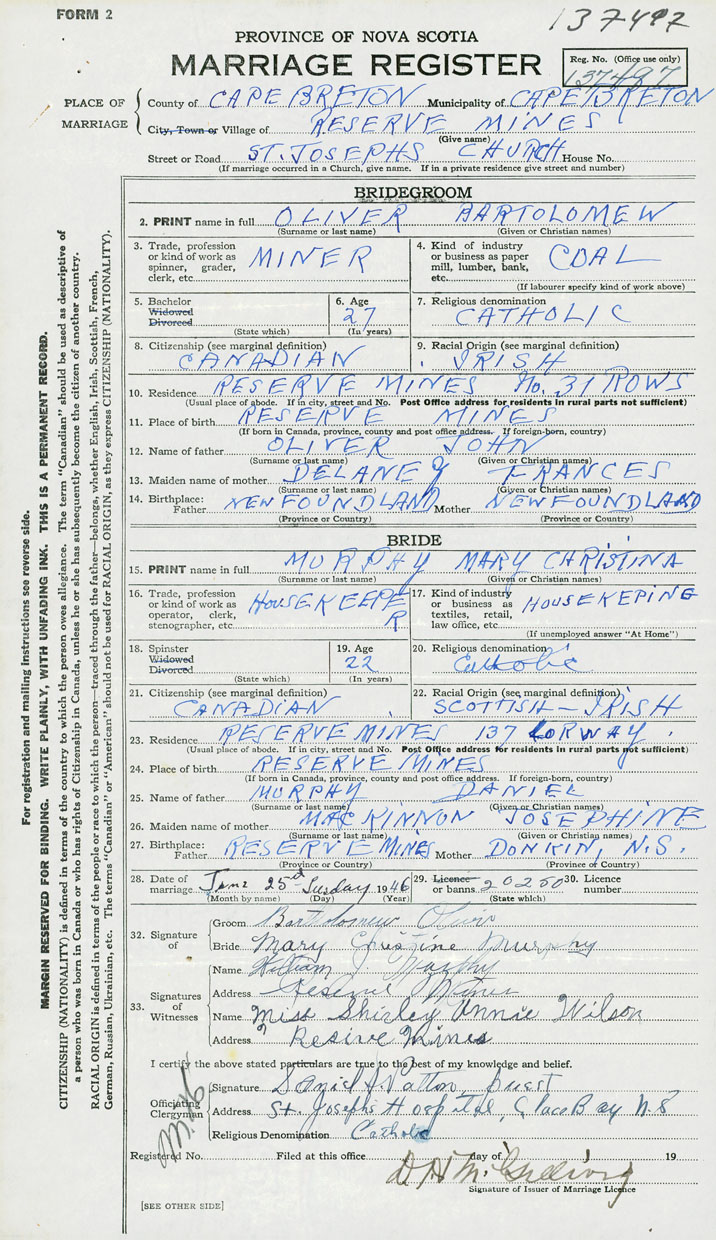 FORM 2
137497
PROVINCE OF NOVA SCOTIA
MARRIAGE REGISTER
Reg. No. (Office use only)
137497
PLACE OF MARRIAGE
County of CAPE BRETON Municipality of CAPE BRETON
City, Town or Village of RESERVE MINES
(Give name)
Street or Road ST. JOSEPHS CHURCH House No.
(If marriage occurred in a Church, give name. If in a private residence give street and number)
BRIDEGROOM
2. PRINT name in full OLIVER BARTOLOMEW
(Surname or last name) (Given or Christian names)
3. Trade, profession or kind of work as spinner, grader, clerk, etc. MINER
4. Kind of industry or business as paper mill, lumber, bank, etc. COAL
(If labourer specify kind of work above)
5. Bachelor Widowed Divorced
(State which)
6. Age 27
(In years)
7. Religious denomination CATHOLIC
8. Citizenship (see marginal definition) CANADIAN
9. Racial Origin (see marginal definition) IRISH
10. Residence RESERVE MINES No. 31 ROWS
(Usual place of abode. If in city, street and No. Post Office address for residents in rural parts not sufficient)
11. Place of birth RESERVE MINES
(If born in Canada, province, county and post office address. If foreign-born, country)
12. Name of father OLIVER JOHN
(Surname or last name) (Given or Christian names)
13. Maiden name of mother DELANEY FRANCES
(Surname or last name) (Given or Christian names)
14. Birthplace: Father NEWFOUNDLAND Mother NEWFOUNDLAND
(Province or Country) (Province or Country)
BRIDE
15. PRINT name in full MURPHY MARY CHRISTINA
(Surname or last name) (Given or Christian names)
16. Trade, profession or kind of work as operator, clerk, stenographer, etc. HOUSEKEEPER
17. Kind of industry or business as textiles, retail, law office, etc. HOUSEKEPING
(If unemployed answer "At Home")
18. Spinster Widowed Divorced
(State which)
19. Age 22
(In years)
20. Religious denomination Catholic
21. Citizenship (see marginal definition) CANADIAN
22. Racial Origin (see marginal definition) SCOTTISH-IRISH
23. Residence RESERVE MINES 137 LORWAY.
(Usual place of abode. If in city, street and No. Post Office address for residents in rural parts not sufficient)
24. Place of birth RESERVE MINES
(If born in Canada, province, county and post office address. If foreign-born, country)
25. Name of father MURPHY DANIEL
(Surname or last name) (Given or Christian names)
26. Maiden name of mother MACKINNON JOSEPHINE
(Surname or last name) (Given or Christian names)
27. Birthplace: Father RESERVE MINES Mother DONKIN, N.S.
(Province or Country) (Province or Country)
28. Date of marriage June 25 Tuesday 1946
(Month by name) (Day) (Year)
29. Licence or banns 20250
(State which)
30. Licence number
32. Signature of
Groom Bartholomew Oliver
Bride Mary Christine Murphy
33. Signatures of Witnesses
Name William J. Murphy
Address Reserve Mines
Name Miss Shirley Annie Wilson
Address Resive Mines
I certify the above stated particulars are true to the best of my knowledge and belief.
Officiating Clergyman
Signature Patton, priest
Address St. Josephs Hospital, Glace Bay N.S
Religious Denomination Catholic
Registered No. Filed at this office day of 19
Signature of Issuer of Marriage Licence
[SEE OTHER SIDE]
For registration and mailing instructions see reverse side.
MARGIN RESERVED FOR BINDING. WRITE PLAINLY, WITH UNFADING INK. THIS IS A PERMANENT RECORD.
CITIZENSHIP (NATIONALITY) is defined in terms of the country to which the person owes allegiance. The term "Canadian" should be used as descriptive of
a person who was born in Canada or who has rights of Citizenship in Canada, unless he or she has subsequently become the citizen of another country.
RACIAL ORIGIN is defined in terms of the people or race to which the person—traced through the father—belongs, whether English, Irish, Scottish, French,
German, Russian, Ukrainian, etc. The terms "Canadian" or "American" should not be used for RACIAL ORIGIN, as they express CITIZENSHIP (NATIONALITY).